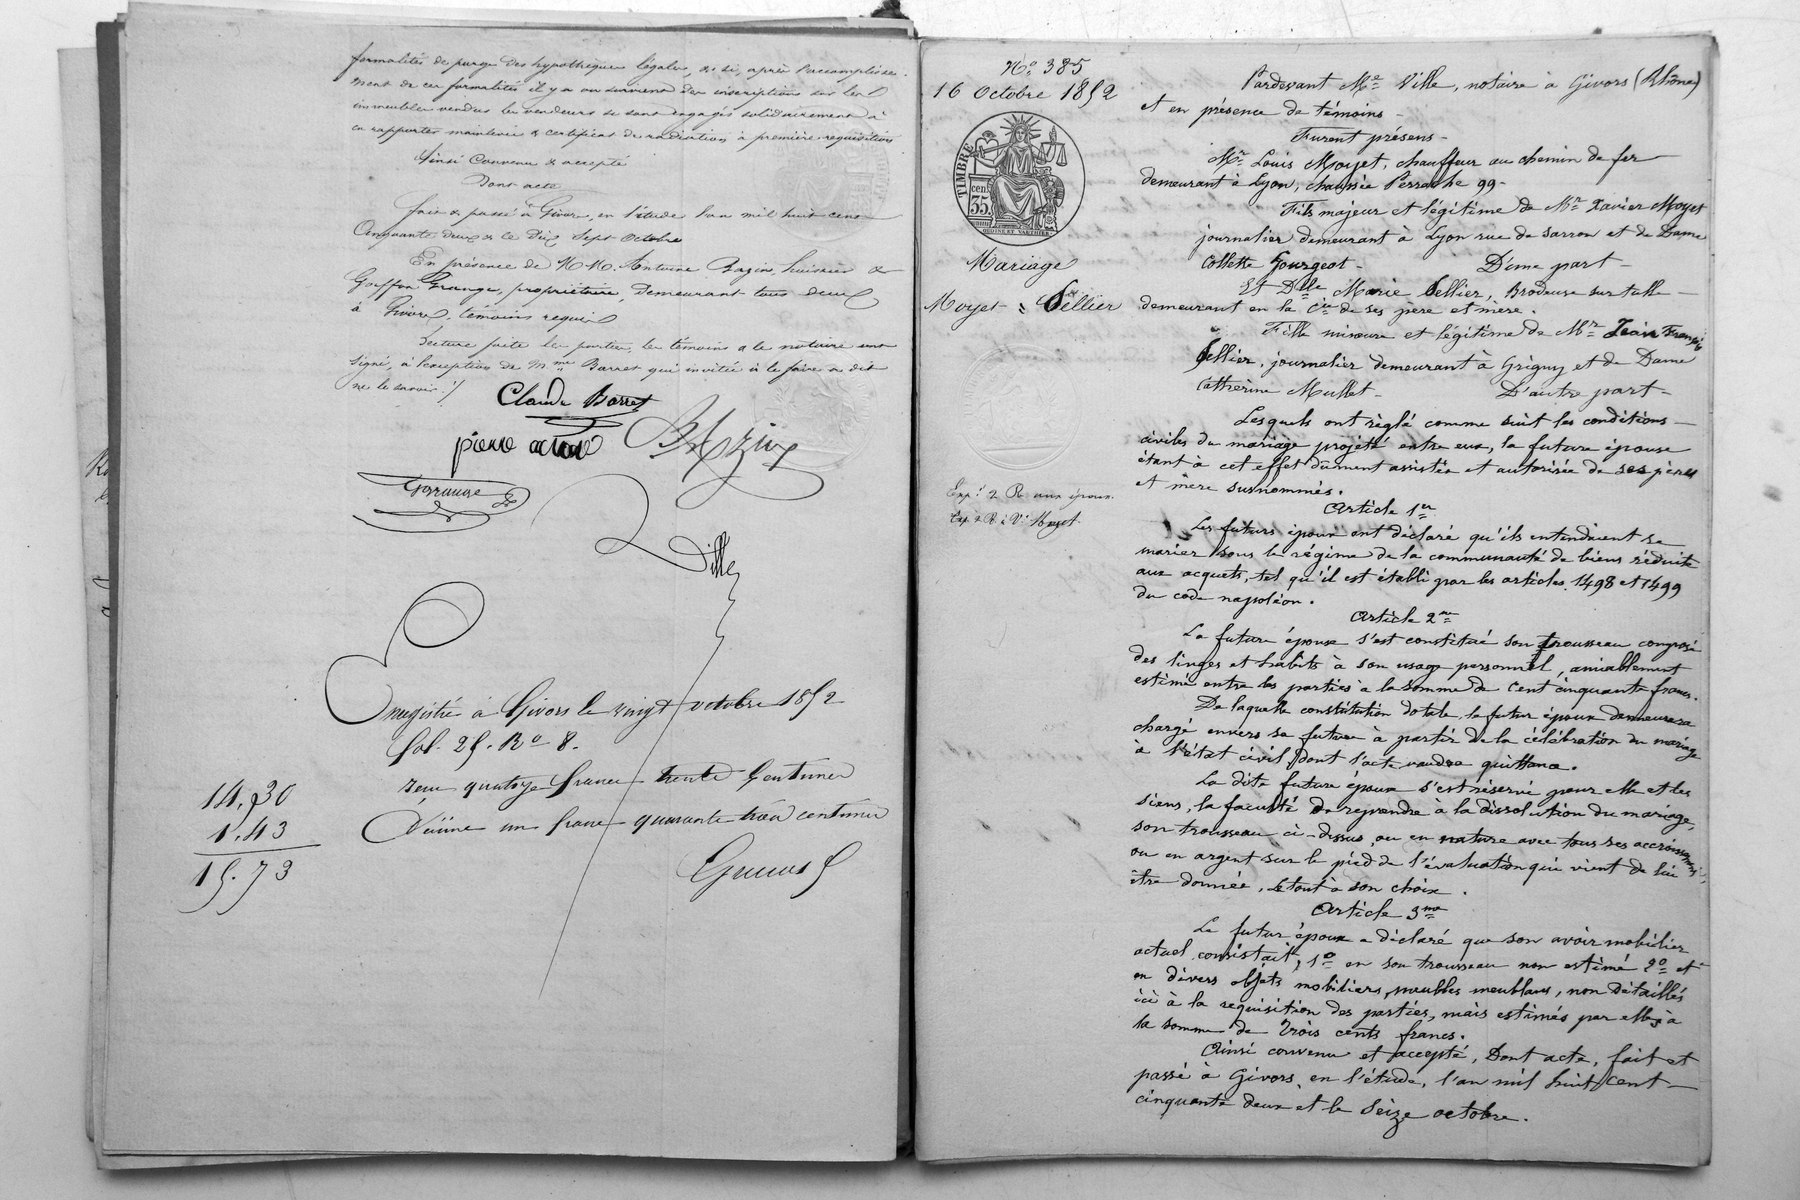 formalités de purge des hypothèques légales, & si, après l'accomplisse-
ment de ces formalités il y a ou survient des inscriptions sur les
immeubles vendus les vendeurs se sont engagés solidairement à
en rapporter mainlevée & certificat de radiation à première requisition
Ainsi Convenu & accepté
Dont acte
fait & passé à Givors, en l'étude l'an mil huit cent
Cinquante deux & le Dix Sept Octobre
En présence de M.M. Antoine Bazin, huissier &
Goiffon Grange, propriétaire, Demeurant tous deux
à Givors, témoins requis
Lecture faite les parties, les témoins & le notaire ont
signé, à l'exception de Mme Barret qui invitée à le faire a dit
ne le savoir ./
Claude Barret
pierre
BAzin
Ggrange
Ville
Enregistré à Givors le vingt octobre 1852
fol. 25. Ro 8.
reçu quatorze francs trente Centimes
Décime un franc quarante trois centimes
14,30
1.43
15.73
No 385
16 Octobre 1852
TIMBRE
cen.
35.
Mariage
Moyet = Sellier
Exp. 2 R aux époux.
Exp. 2 R. à Ve Moyet.
Pardevant Me Ville, notaire à Givors (Rhône)
et en présence de témoins -
Furent présens -
Mr Louis Moyet, chauffeur au chemin de fer
demeurant à Lyon, chaussée Perrache 99 -
Fils majeur et légitime de Mr Xavier Moyet
journalier demeurant à Lyon rue de Sarron et de Dame
Collette Gourgeot - D'une part -
Et Dlle Marie Sellier, Brodeuse sur tulle -
demeurant en la Cie de ses père et mère.
Fille mineure et légitime de Mr Jean François
Sellier, journalier demeurant à Grigny et de Dame
Catherine Mullet - D'autre part -
Lesquels ont réglé comme suit les conditions -
civiles du mariage projeté entre eux, la future épouse
étant à cet effet dûment assistée et autorisée de ses père
et mère susnommés.
Article 1er
Les futurs époux ont déclaré qu'ils entendaient se
marier sous le régime de la communauté de biens réduite
aux acquets, tel qu'il est établi par les articles 1498 et 1499
du code napoléon.
Article 2me
La future épouse s'est constitué son trousseau composé
des linges et habits à son usage personnel, amiablement
estimé entre les parties à la somme de cent cinquante francs.
De laquelle constitution dotale, le futur époux demeurera
chargé envers sa future à partir de la célébration du mariage
à l'état civil dont l'acte vaudra quittance.
La dite future épouse s'est réservé pour elle et les
siens, la faculté de reprendre à la dissolution du mariage,
son trousseau ci-dessus, ou en nature avec tous ses accroissements,
ou en argent sur le pied de l'évaluation qui vient de lui
être donnée, le tout à son choix.
Article 3me
Le futur époux a déclaré que son avoir mobilier
actuel consistait, 1o en son trousseau non estimé 2o et
en divers objets mobiliers, meubles meublans, non détaillés
ici à la requisition des parties, mais estimés par elles à
la somme de trois cents francs.
Ainsi convenu et accepté, Dont acte, fait et
passé à Givors, en l'étude, l'an mil huit cent -
cinquante deux et le Seize octobre.